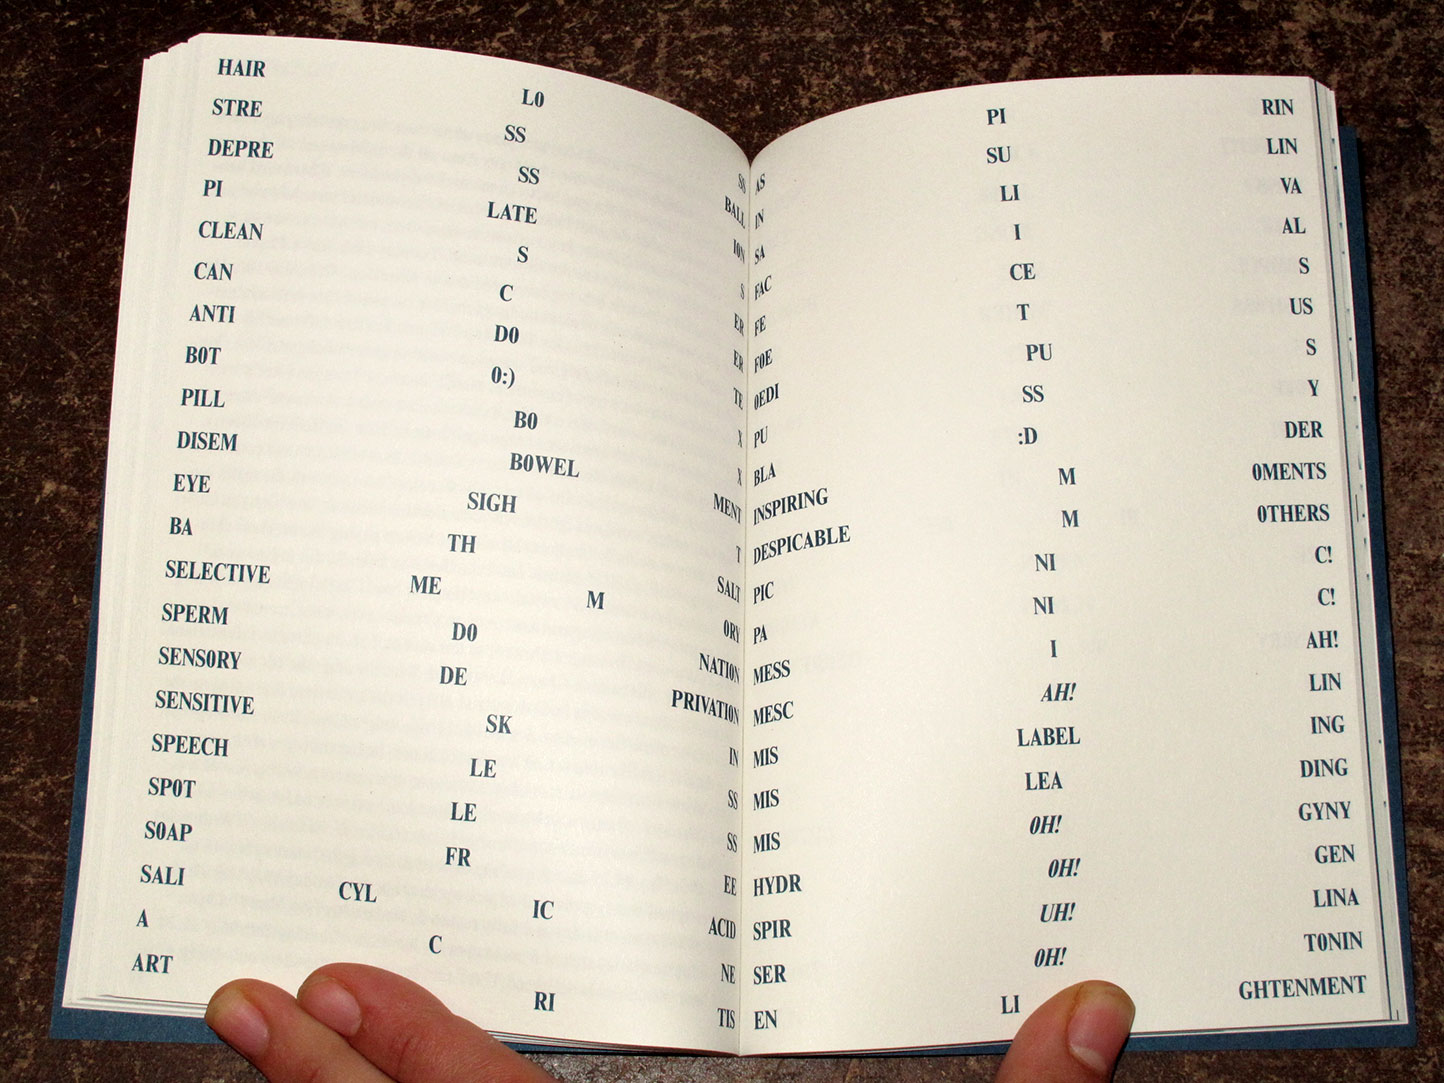 HAIR L0 SS
STRE SS BALL
DEPRE SS I0N
PI LATE S
CLEAN S ER
CAN C ER
ANTI D0 TE
B0T 0:) X
PILL B0 X
DISEM B0WEL MENT
EYE SIGH T
BA TH SALT
SELECTIVE ME M 0RY
SPERM D0 NATI0N
SENS0RY DE PRIVATI0N
SENSITIVE SK IN
SPEECH LE SS
SP0T LE SS
S0AP FR EE
SALI CYL IC ACID
A C NE
ART RI TIS
AS PI RIN
IN SU LIN
SA LI VA
FAC I AL
FE CE S
F0E T US
0EDI PU S
PU SS Y
BLA :D DER
INSPIRING M 0MENTS
DESPICABLE M 0THERS
PIC NI C!
PA NI C!
MESS I AH!
MESC AH! LIN
MIS LABEL ING
MIS LEA DING
MIS 0H! GYNY
HYDR 0H! GEN
SPIR UH! LINA
SER 0H! T0NIN
EN LI GHTENMENT